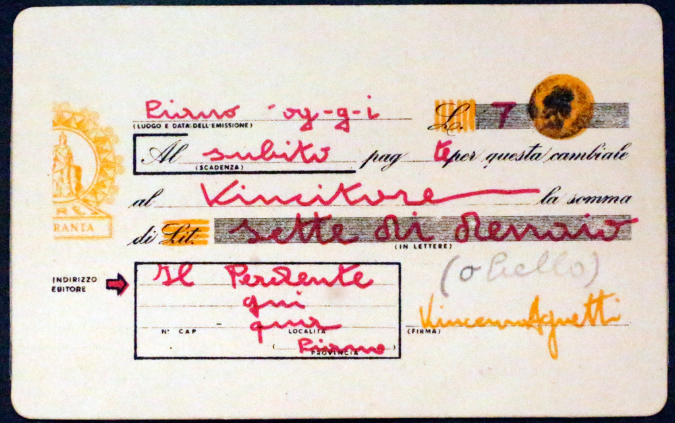 Piano og-g-i Lit. 7
(LUOGO E DATA DELL'EMISSIONE)
Al subito pag te per questa cambiale
(SCADENZA)
al Vincitore la somma
di Lit. sette di denaio
(IN LETTERE)
(o bello)
INDIRIZZO
EBITORE
Il Perdente
qui
qua
N° CAP LOCALITÀ
Piano
PROVINCIA
Vincenzo Agnetti
(FIRMA)
RANTA